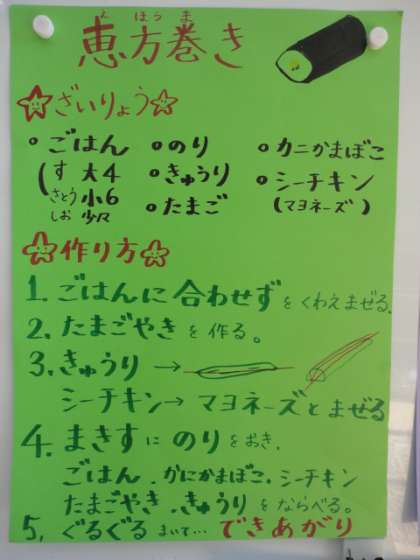 えほうま
恵方巻き
ざいりょう
・ごはん ・のり ・カニかまぼこ
(す 大4 ・きゅうり ・シーチキン
さとう 小6 ・たまご (マヨネーズ)
しお 少々
作り方
1. ごはんに合わせずをくわえまぜる。
2. たまごやきを作る。
3. きゅうり→
シーチキン→マヨネーズとまぜる
4. まきすにのりをおき、
ごはん、かにかまぼこ、シーチキン
たまごやき、きゅうりをならべる。
5. ぐるぐるまいて…できあがり